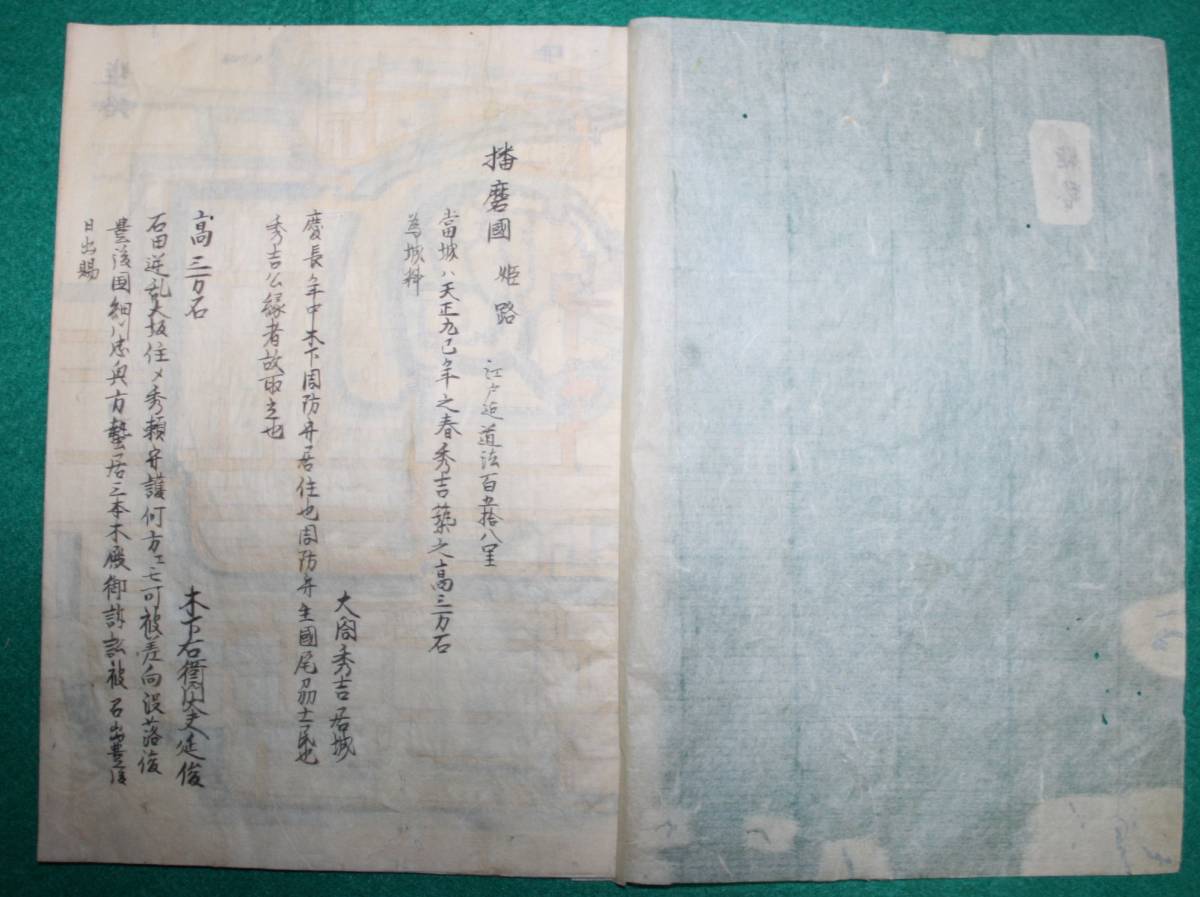 播磨國 姫路 江戸迠道法百五拾八里
當城ハ天正九巳年之春秀吉築之高三万石
為城料
大閤秀吉居城
慶長年中木下周防守居住也周防守生國尾刕士民也
秀吉公縁者故取立也
高三万石
木下右衛門大夫延俊
石田逆乱大坂住〆秀頼守護何方エモ可被差向没落後
豊後国細川忠興方蟄居三本木殿御訴訟被 召出豊後
日出賜